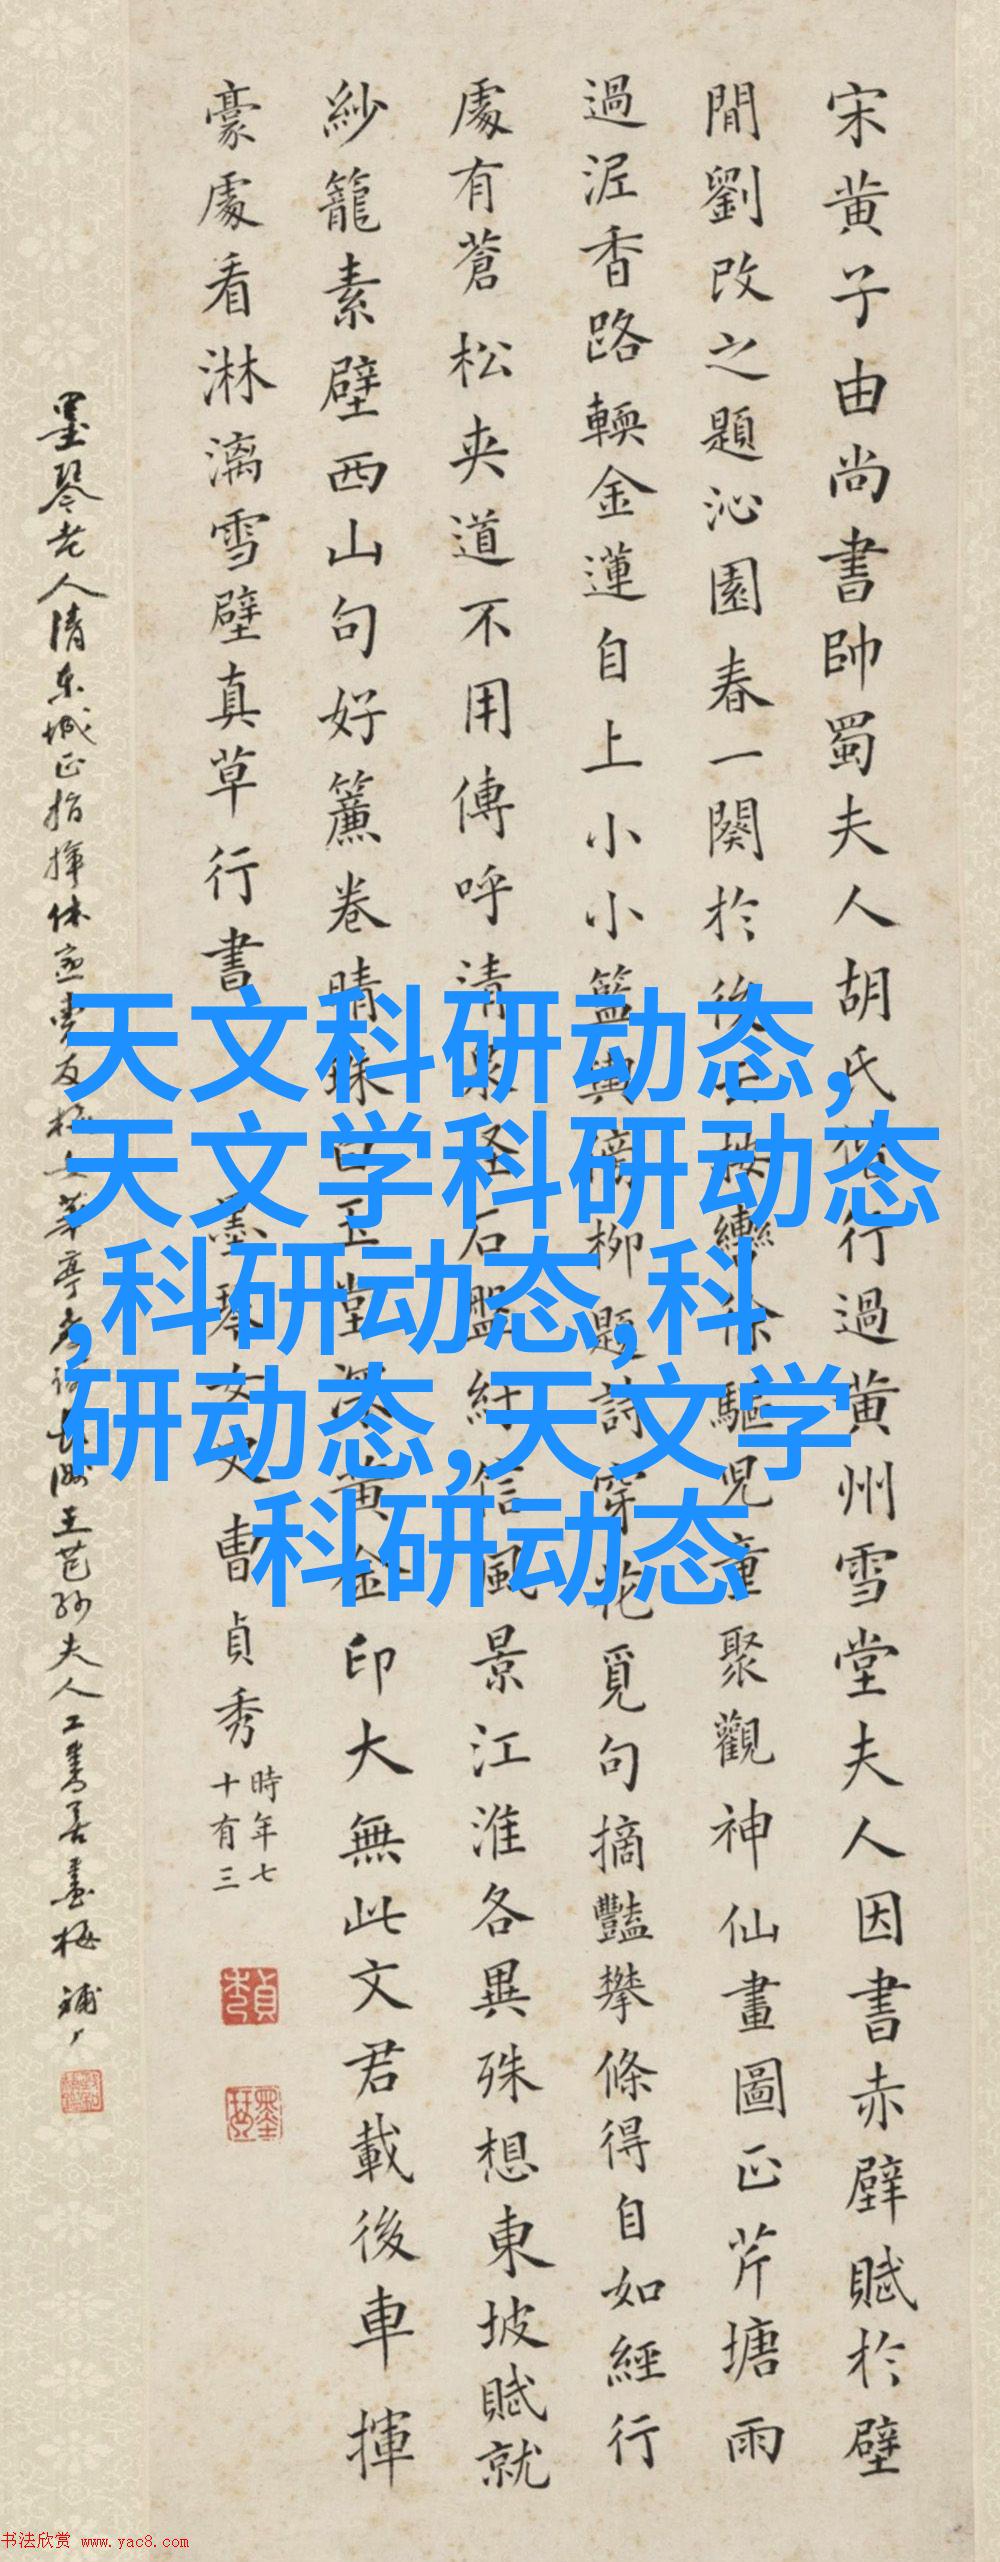 宋黄子由尚書帥蜀夫人胡氏行過黄州雪堂夫人因書赤壁賦於壁
間劉改之題沁園春一闋於後按轡徐驅兒童聚觀神仙畫圖正芹塘雨
過泥香路輭金蓮自上小小籃輿傍柳題詩穿花覓句摘豔攀條得自如經行
處有蒼松夾道不用傳呼清泉怪石盤紆信風景江淮各異殊想東坡賦就
紗籠素壁西山句好簾卷晴珠白玉堂深黄金印大無此文君載後車揮
豪處看淋漓雪壁真草行書
墨琴女史曹貞秀
時年七
十有三
墨琴老人清東城正指揮王芑孫夫人工書善畫梅
天文科研动态,
天文学科研动态
,科研动态,科
研动态,天文学
科研动态
书法欣赏 www.yac8.com